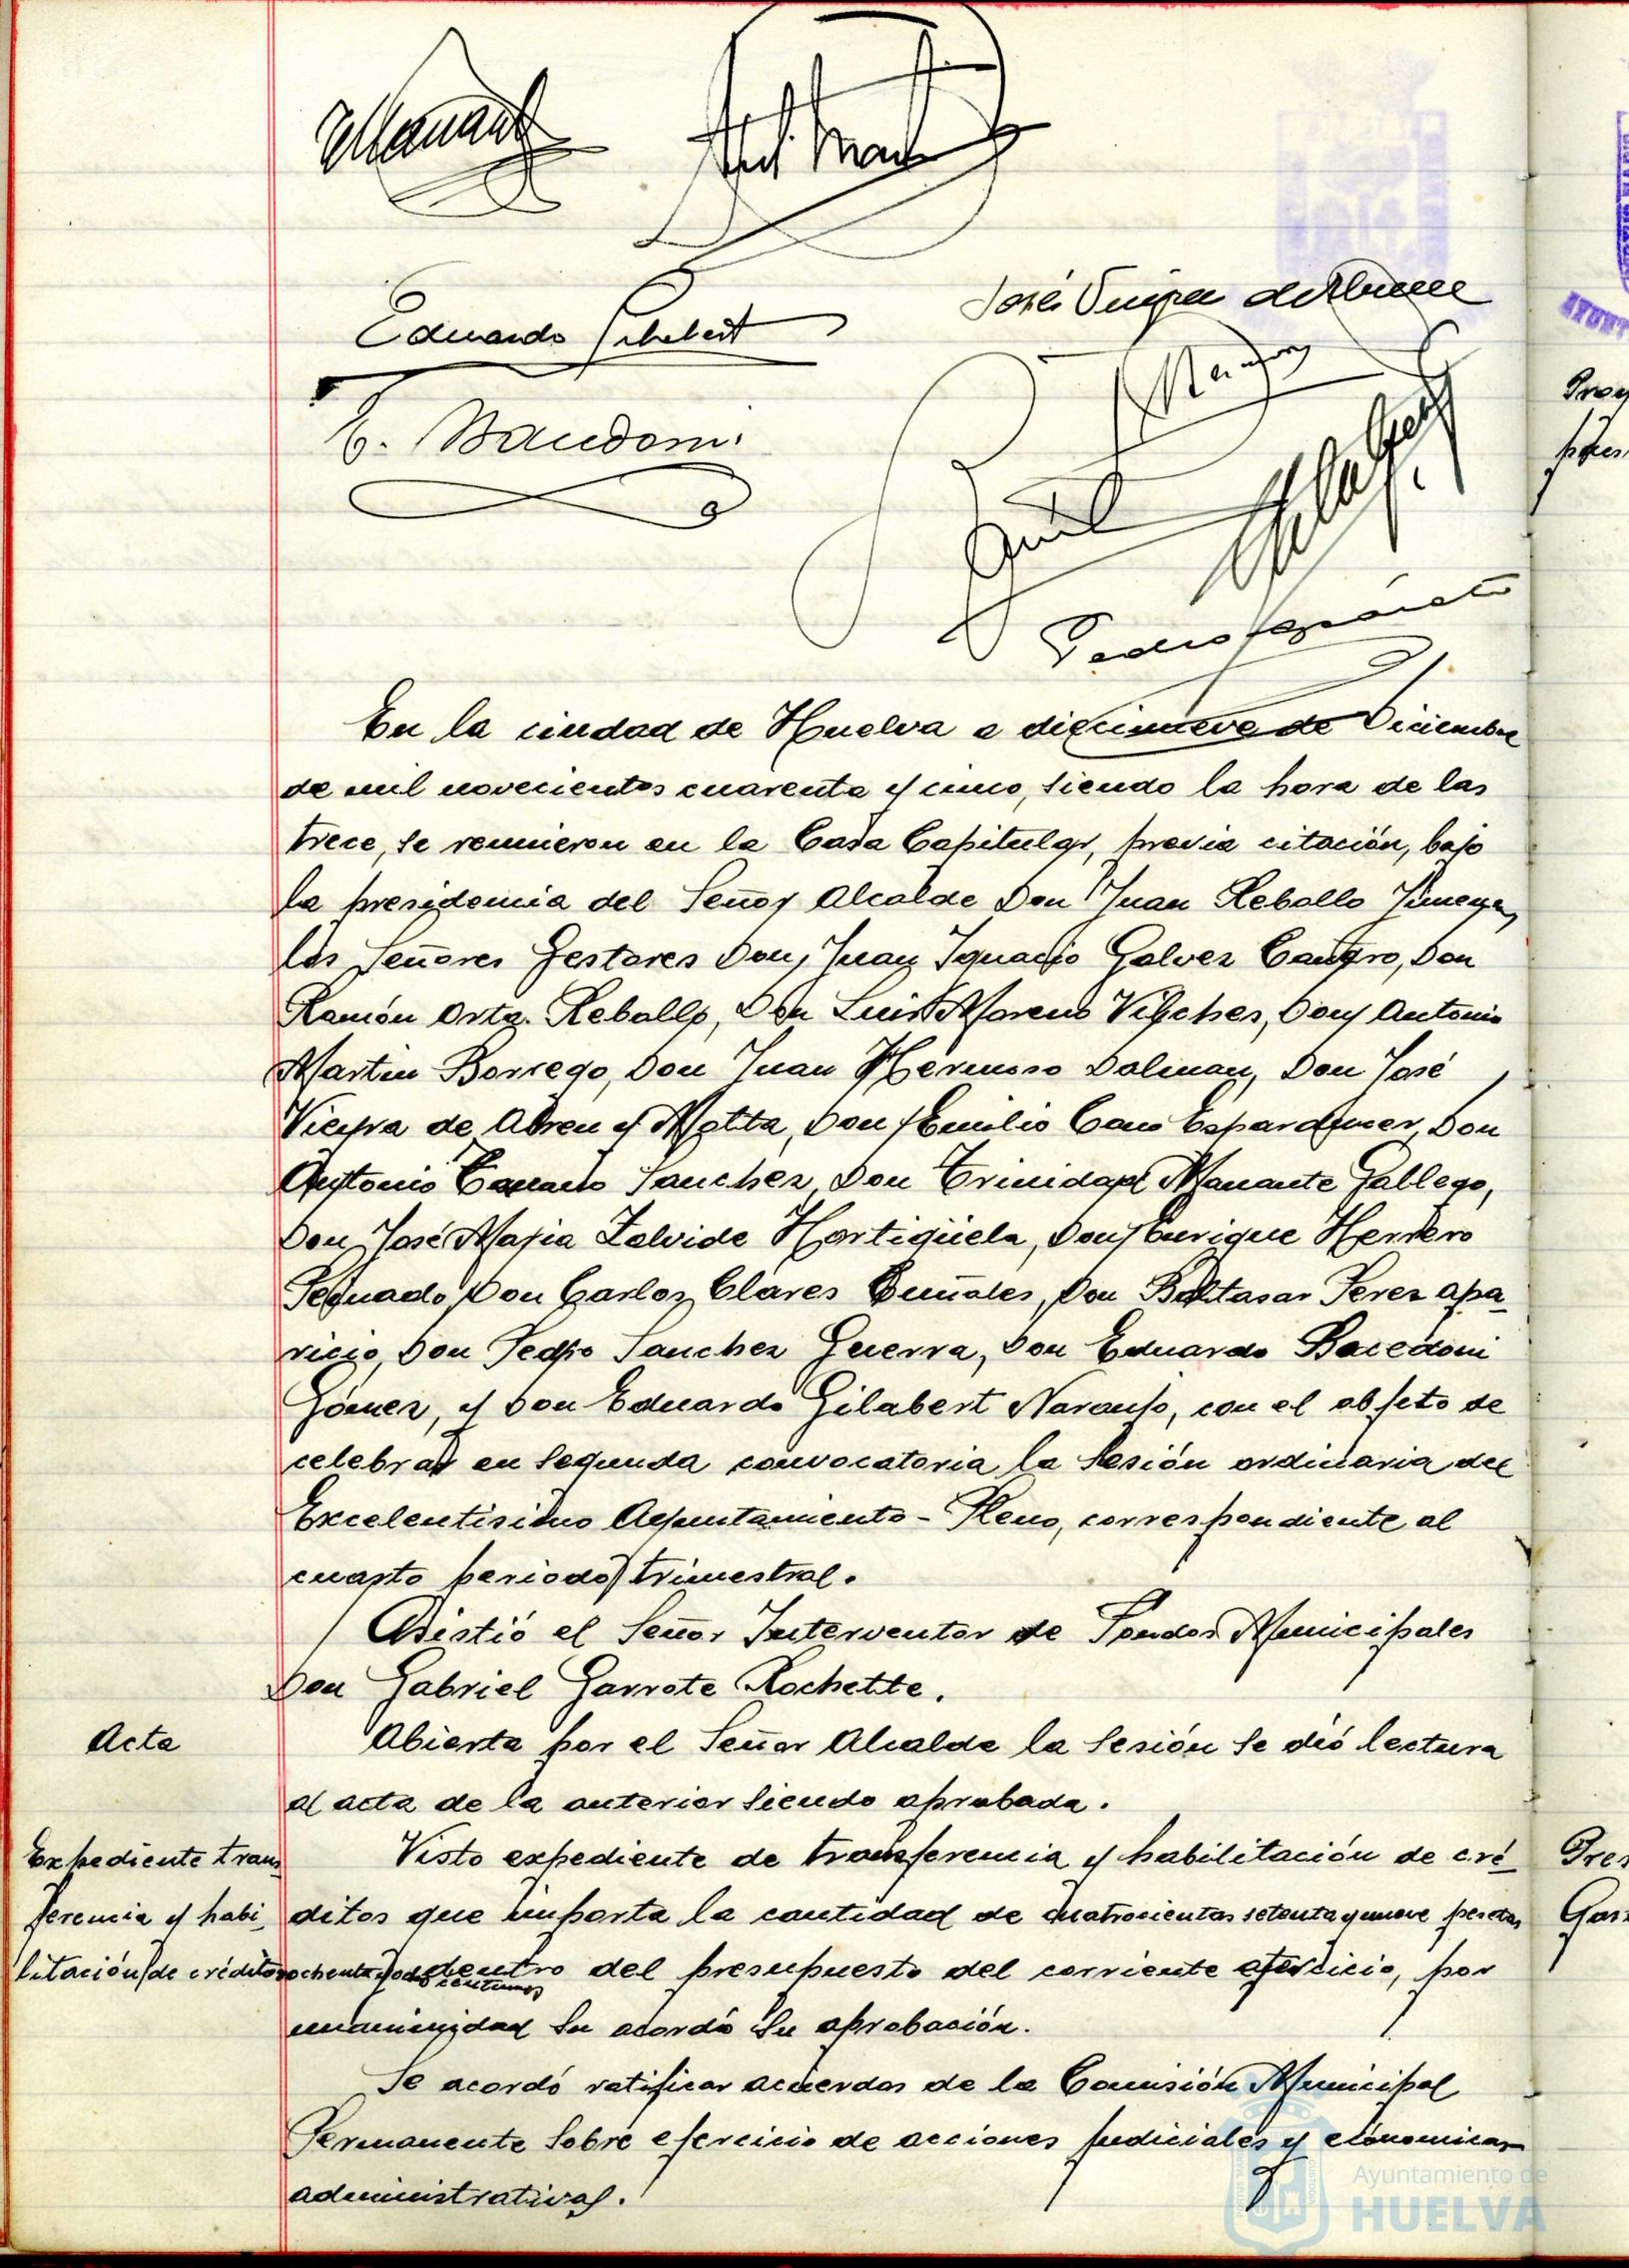 Eduardo Gilabert
E. Bacedoni
En la ciudad de Huelva a diecinueve de Diciembre
de mil novecientos cuarenta y cinco, siendo la hora de las
trece, se reunieron en la Casa Capitular, previa citación, bajo
la presidencia del Señor Alcalde Don Juan Rebollo Jimenez,
los Señores Gestores Don Juan Ignacio Galvez Cantero, Don
Ramón Orta Rebollo, Don Luis Moreno Vilches, Don Antonio
Martin Borrego, Don Juan Hermoso Dolman, Don José
Vieyra de Abreu y Motta, Don Emilio Cano Esparducer, Don
Antonio Sanchez, Don Trinidad Manante Gallego,
Don José Maria Zalvide Hortigüela, Don Enrique Herrero
Peguado, Don Carlos Clares Don Baltasar Perez Apa-
ricio, Don Pedro Sanchez Guerra, Don Eduardo Bacedoni
Gómez, y Don Eduardo Gilabert Naranjo, con el objeto de
celebrar en segunda convocatoria la sesión ordinaria del
Excelentisimo Ayuntamiento-Pleno, correspondiente al
cuarto periodo trimestral.
Asistió el Señor Interventor de Fondos Municipales
Don Gabriel Garrote Rochette.
Acta
Abierta por el Señor Alcalde la sesión se dió lectura
al acta de la anterior siendo aprobada.
Expediente trans
ferencia y habi
litación de créditos
Visto expediente de transferencia y habilitación de cré-
ditos que importa la cantidad de cuatrocientas setenta y nueve pesetas
ochenta y dos centimos dentro del presupuesto del corriente ejercicio, por
unanimidad se acordó su aprobación.
Se acordó ratificar acuerdos de la Comisión Municipal
Permanente sobre ejercicio de acciones judiciales y económicas
administrativas.
Ayuntamiento de
HUELVA